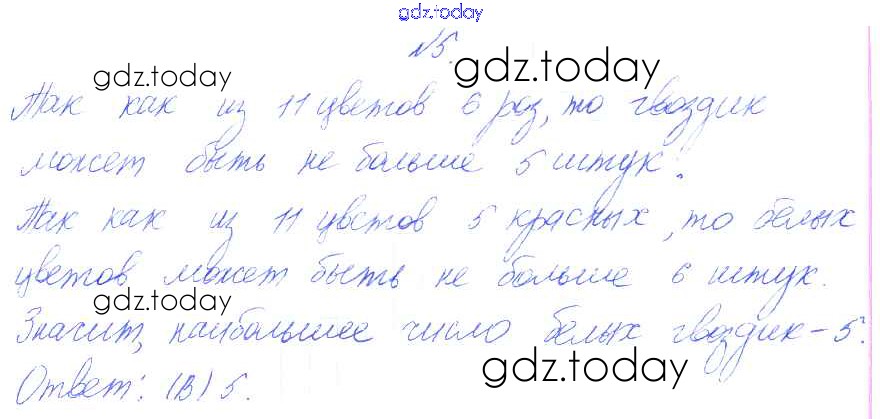 gdz.today
№5.
gdz.today gdz.today
Так как из 11 цветов 6 роз, то гвоздик
может быть не больше 5 штук.
Так как из 11 цветов 5 красных, то белых
цветов может быть не больше 6 штук.
gdz.today
Значит, наибольшее число белых гвоздик – 5.
gdz.today
Ответ: (В) 5.